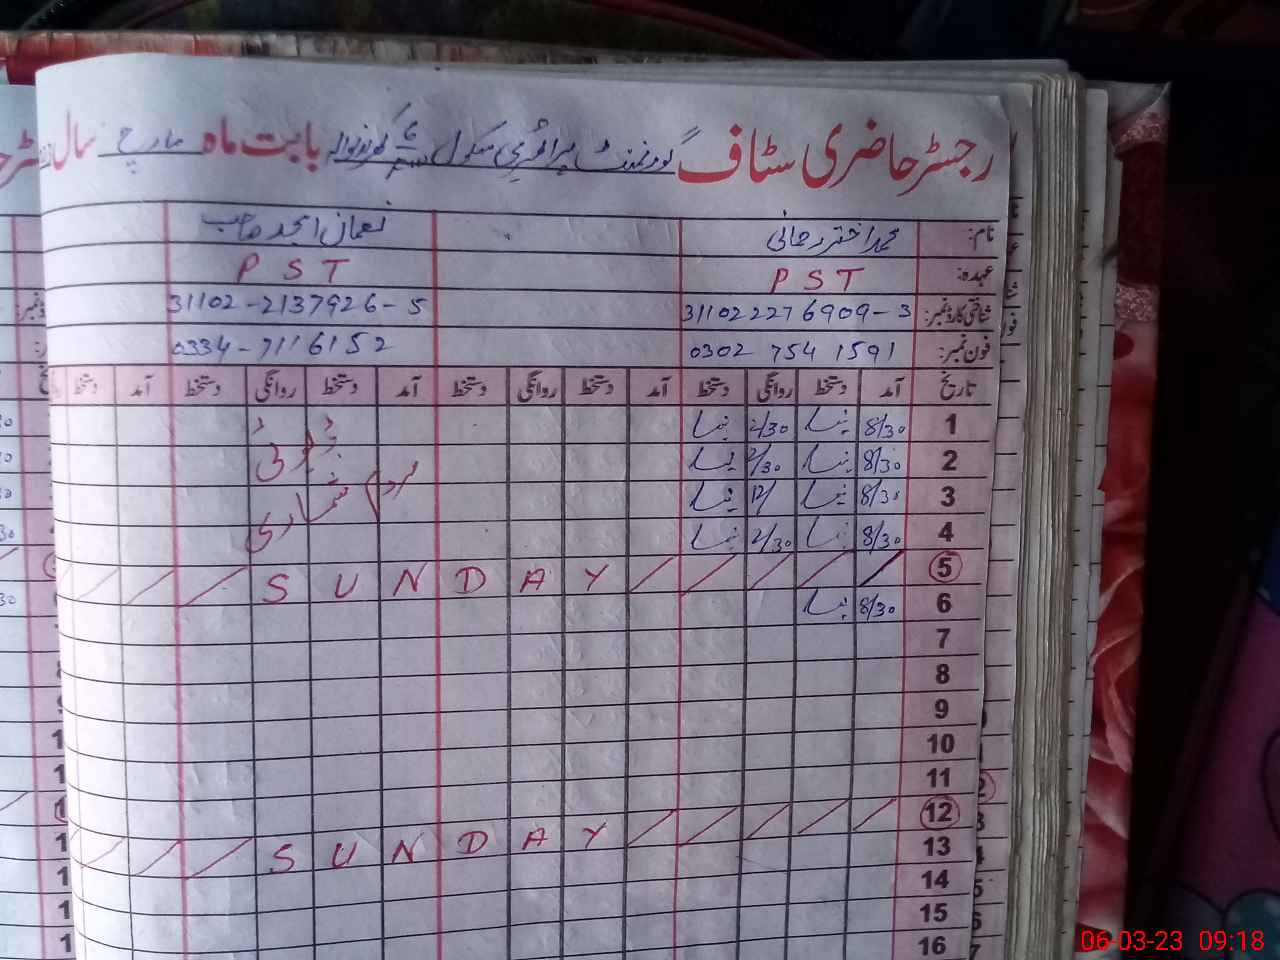 رجسٹر حاضری سٹاف گورنمنٹ پرائمری سکول بابت ماہ مارچ سال
نام: محمد اختر رحمانی نعمان امجد صاحب
عہدہ: PST PST
شناختی کارڈ نمبر: 31102 2276909-3 31102-2137926-5
فون نمبر: 0302 754 1591 0334-7116152
تاریخ آمد دستخط روانگی دستخط آمد دستخط روانگی دستخط آمد دستخط روانگی دستخط آمد دستخط
1 8/30 2/30
2 8/30 2/30
3 8/30 12/
4 8/30 2/30
5 SUNDAY
6 8/30
7
8
9
10
11
12 SUNDAY
13
14
15
16
06-03-23 09:18